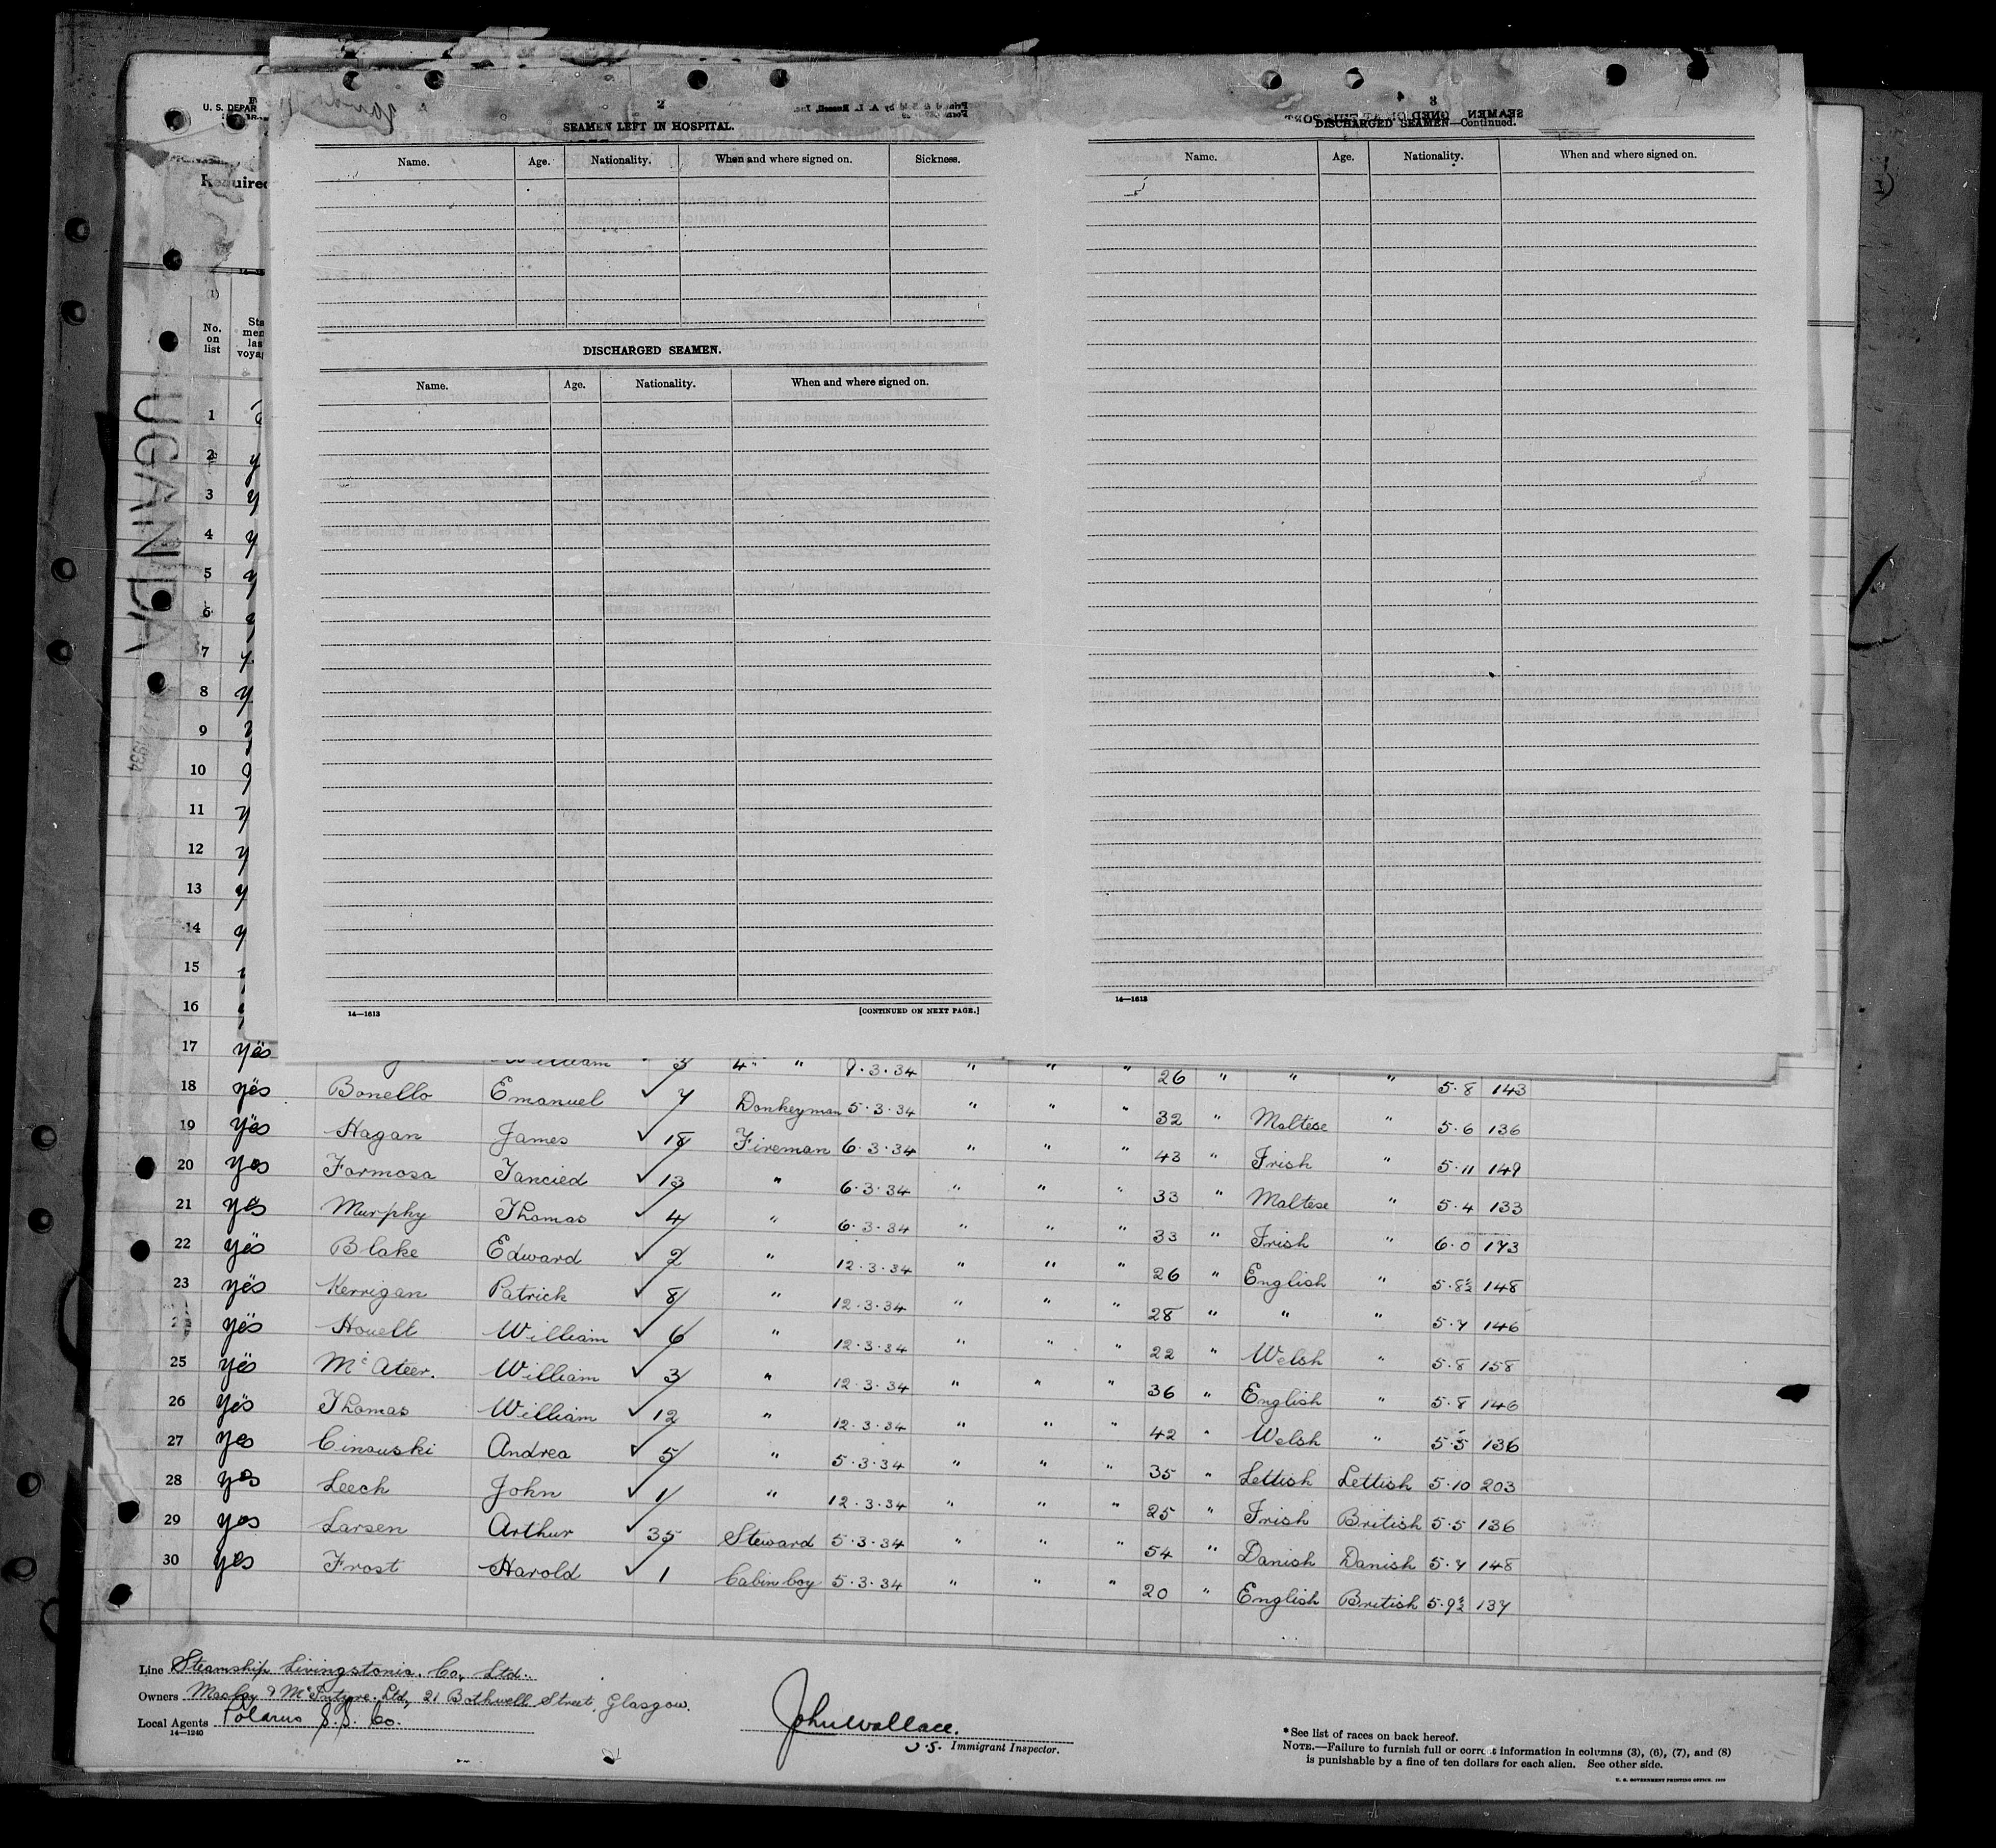 U. S. DEPAR
Required
SEAMEN LEFT IN HOSPITAL.
Name. Age. Nationality. When and where signed on. Sickness.
DISCHARGED SEAMEN.
Name. Age. Nationality. When and where signed on.
14—1613 [CONTINUED ON NEXT PAGE.]
DISCHARGED SEAMEN—Continued.
Name. Age. Nationality. When and where signed on.
14—1613
UGANDA
(1)
No. on list
1
2
3
4
5
6
7
8
9
10
11
12
13
14
15
16
17 yes William 3 4" " 9.3.34 " " " 26 " " " 5.8 143
18 yes Bonello Emanuel ✓ 7 Donkeyman 5.3.34 " " " 32 " Maltese " 5.6 136
19 yes Hagan James ✓ 18 Fireman 6.3.34 " " " 43 " Irish " 5.11 149
20 yes Formosa Tancied ✓ 13 " 6.3.34 " " " 33 " Maltese " 5.4 133
21 yes Murphy Thomas ✓ 4 " 6.3.34 " " " 33 " Irish " 6.0 173
22 yes Blake Edward ✓ 2 " 12.3.34 " " " 26 " English " 5.8½ 148
23 yes Kerrigan Patrick ✓ 8 " 12.3.34 " " " 28 " " " 5.7 146
yes Howell William ✓ 6 " 12.3.34 " " " 22 " Welsh " 5.8 158
25 yes McAteer. William ✓ 3 " 12.3.34 " " " 36 " English " 5.8 146
26 yes Thomas William ✓ 12 " 12.3.34 " " " 42 " Welsh " 5.5 136
27 yes Cinouski Andrea ✓ 5 " 5.3.34 " " " 35 " Lettish Lettish 5.10 203
28 yes Leech John ✓ 1 " 12.3.34 " " " 25 " Irish British 5.5 136
29 yes Larsen Arthur ✓ 35 Steward 5.3.34 " " " 54 " Danish Danish 5.7 148
30 yes Frost Harold ✓ 1 Cabin boy 5.3.34 " " " 20 " English British 5.9½ 137
Line Steamship Livingstonia. Co, Ltd.
Owners Maclay & McIntyre. Ltd, 21 Bothwell Street, Glasgow.
Local Agents Polarus S.S. Co.
14—1240
John Wallace.
U.S. Immigrant Inspector.
*See list of races on back hereof.
NOTE.—Failure to furnish full or correct information in columns (3), (6), (7), and (8)
is punishable by a fine of ten dollars for each alien. See other side.
U. S. GOVERNMENT PRINTING OFFICE